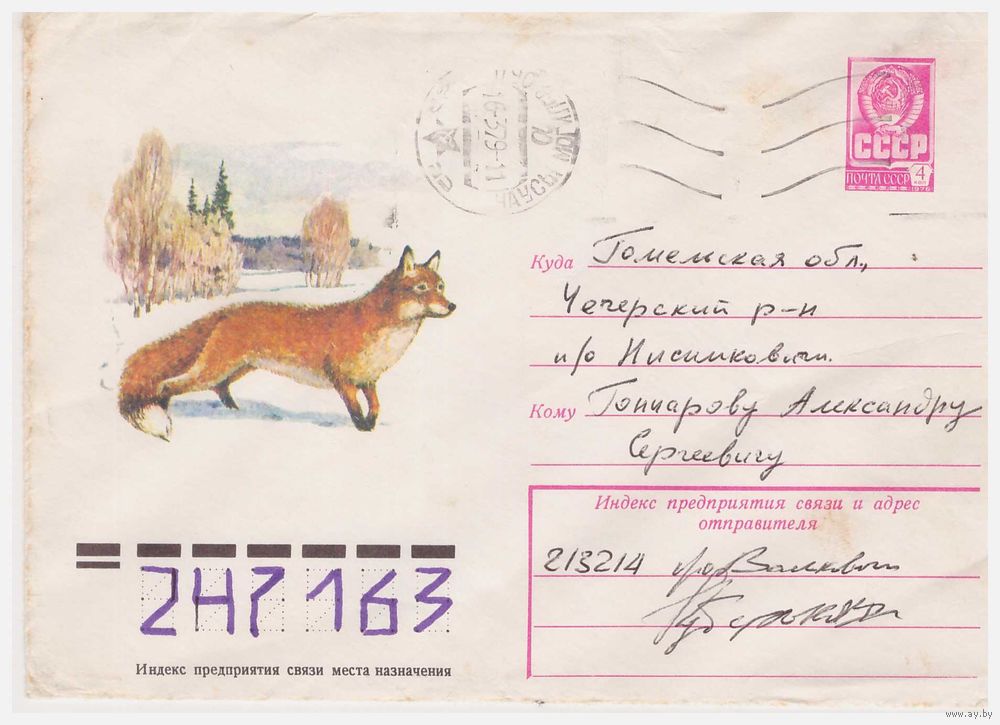 16-3.79-11
ЧАУСЫ МОГИЛЕВ
СССР
ПОЧТА СССР
4 коп
1978
Куда Гомельская обл.,
Чечерский р-н
п/о Нисимковичи
Кому Гончарову Александру
Сергеевичу
Индекс предприятия связи и адрес
отправителя
213214 п/о
247163
Индекс предприятия связи места назначения
www.ay.by